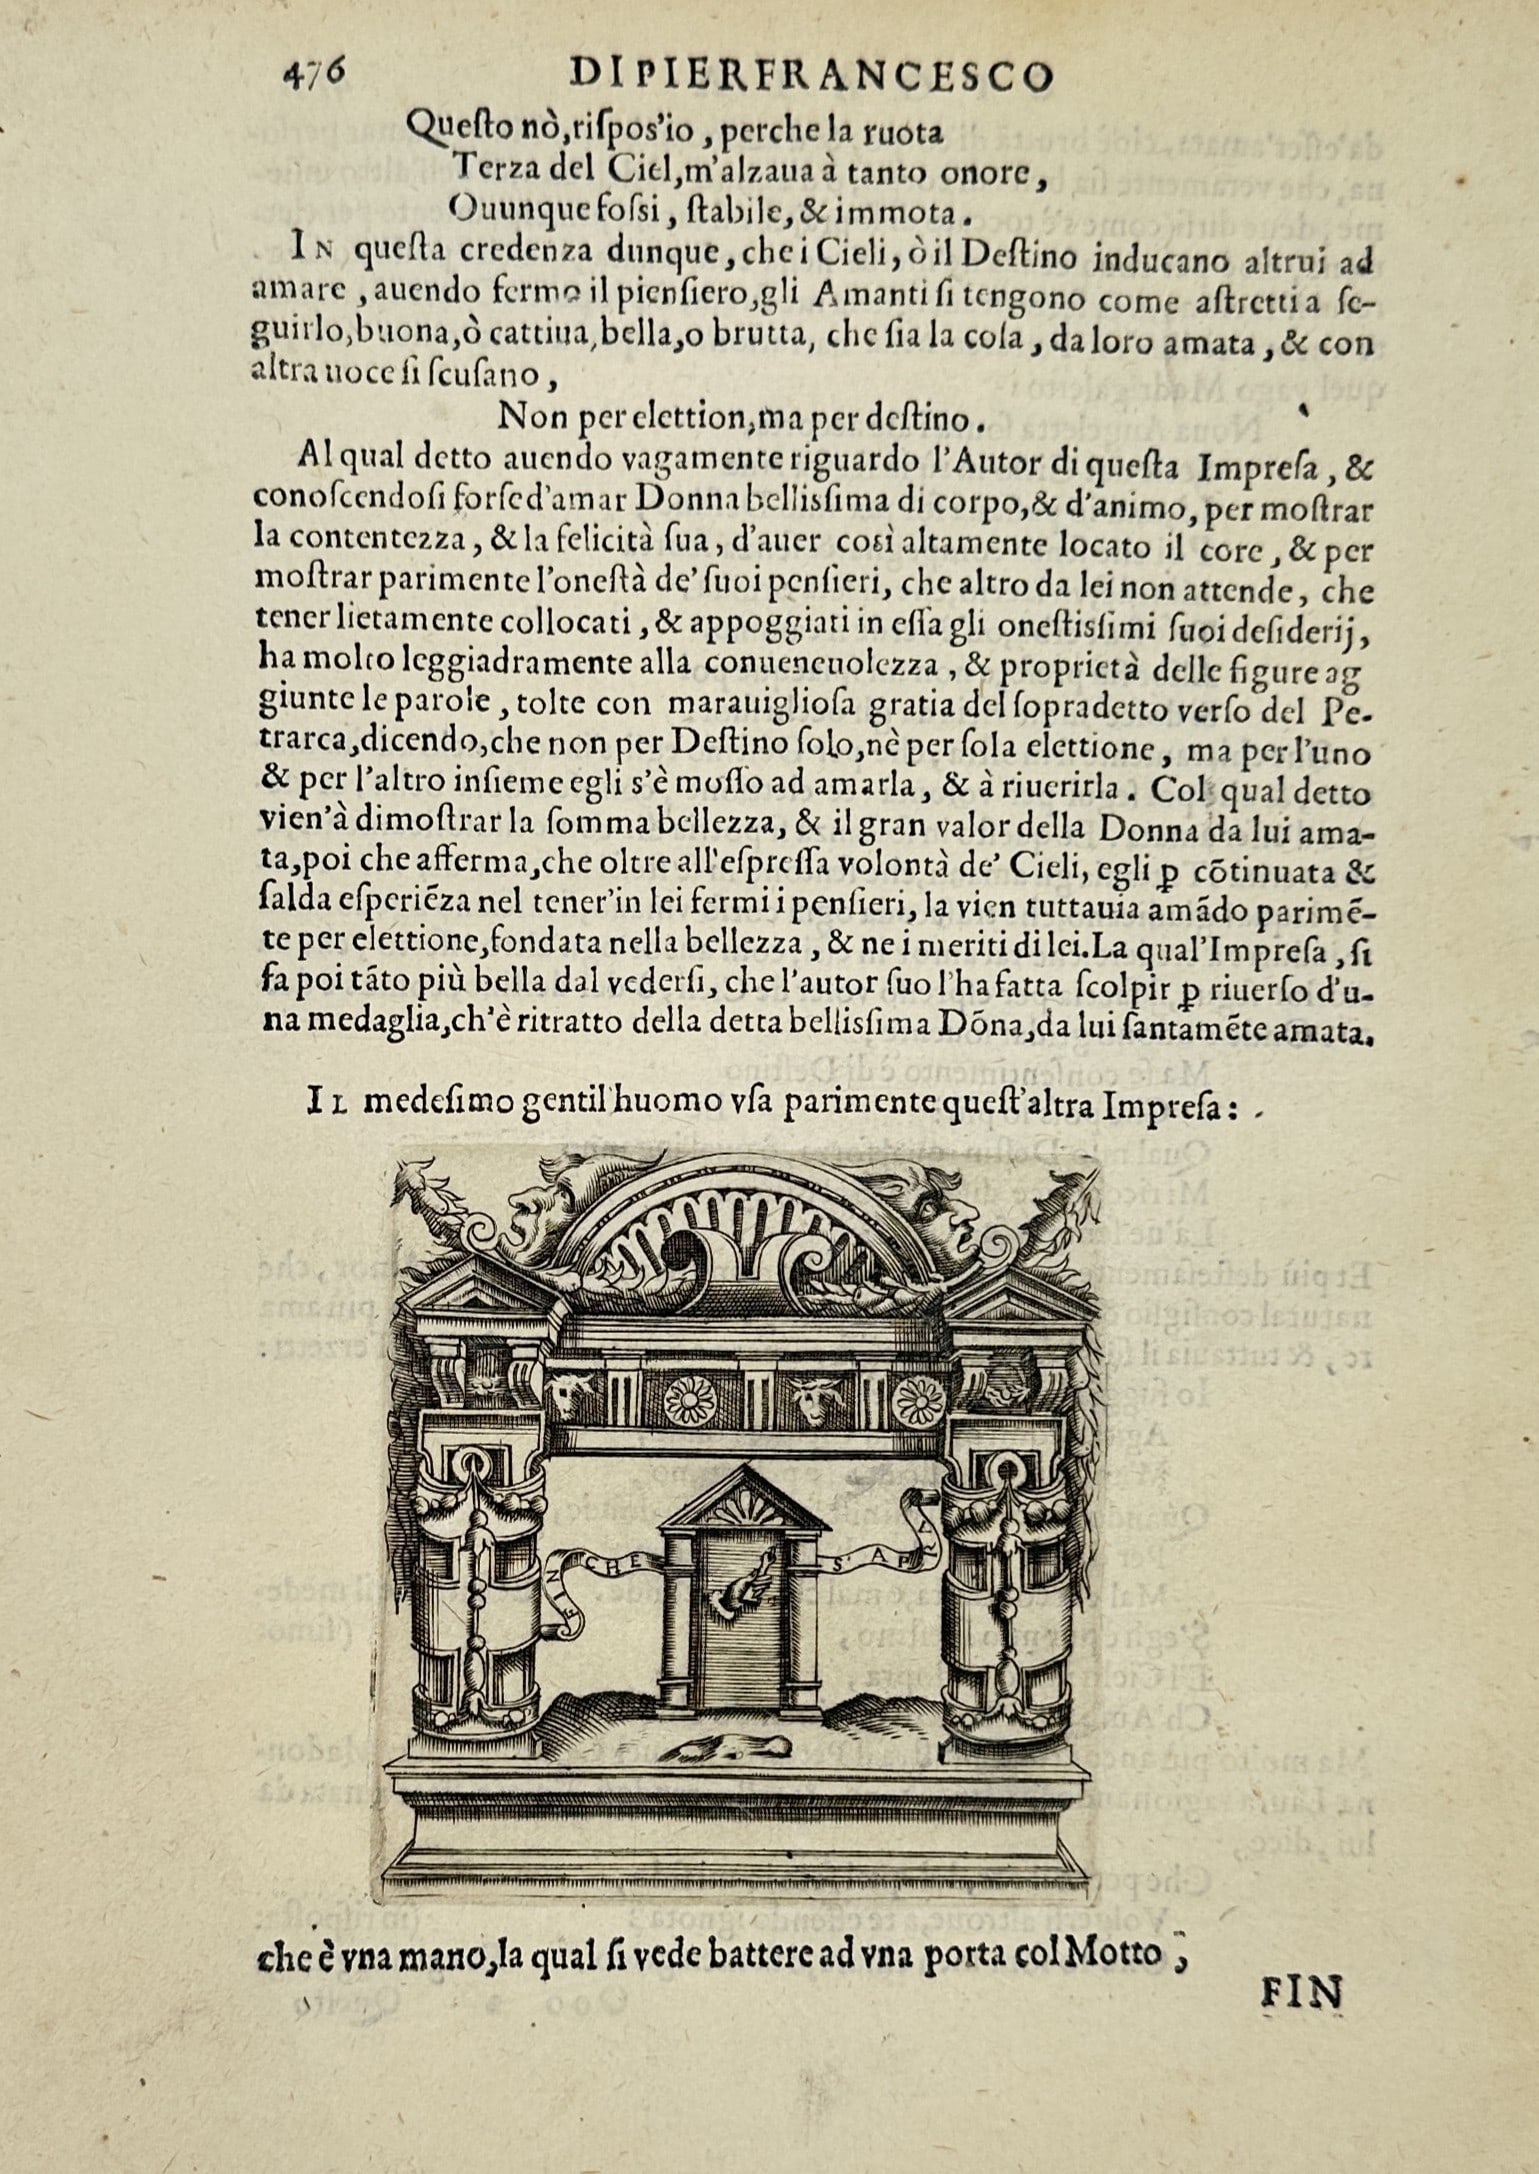 476 DI PIERFRANCESCO
Queſto nò, riſpos'io, perche la ruota
Terza del Ciel, m'alzaua à tanto onore,
Ouunque foſsi, ſtabile, & immota.
IN queſta credenza dunque, che i Cieli, ò il Deſtino inducano altrui ad
amare, auendo fermo il pienſiero, gli Amanti ſi tengono come aſtretti a ſe-
guirlo, buona, ò cattiua, bella, o brutta, che ſia la coſa, da loro amata, & con
altra uoce ſi ſcuſano,
Non per elettion, ma per deſtino.
Al qual detto auendo vagamente riguardo l'Autor di queſta Impreſa, &
conoſcendoſi forſe d'amar Donna belliſsima di corpo, & d'animo, per moſtrar
la contentezza, & la felicità ſua, d'auer così altamente locato il core, & per
moſtrar parimente l'oneſtà de' ſuoi penſieri, che altro da lei non attende, che
tener lietamente collocati, & appoggiati in eſſa gli oneſtiſsimi ſuoi deſiderij,
ha molto leggiadramente alla conueneuolezza, & proprietà delle figure ag
giunte le parole, tolte con marauiglioſa gratia del ſopradetto verſo del Pe-
trarca, dicendo, che non per Deſtino ſolo, nè per ſola elettione, ma per l'uno
& per l'altro inſieme egli s'è moſſo ad amarla, & à riuerirla. Col qual detto
vien'à dimoſtrar la ſomma bellezza, & il gran valor della Donna da lui ama-
ta, poi che afferma, che oltre all'eſpreſſa volontà de' Cieli, egli ꝑ cõtinuata &
ſalda eſperiẽza nel tener'in lei fermi i penſieri, la vien tuttauia amãdo parimẽ-
te per elettione, fondata nella bellezza, & ne i meriti di lei. La qual'Impreſa, ſi
fa poi tãto più bella dal vederſi, che l'autor ſuo l'ha fatta ſcolpir ꝑ riuerſo d'u-
na medaglia, ch'è ritratto della detta belliſsima Dõna, da lui ſantamẽte amata.
IL medeſimo gentil'huomo vſa parimente queſt'altra Impreſa:
FIN CHE S'APRA
che è vna mano, la qual ſi vede battere ad vna porta col Motto,
FIN